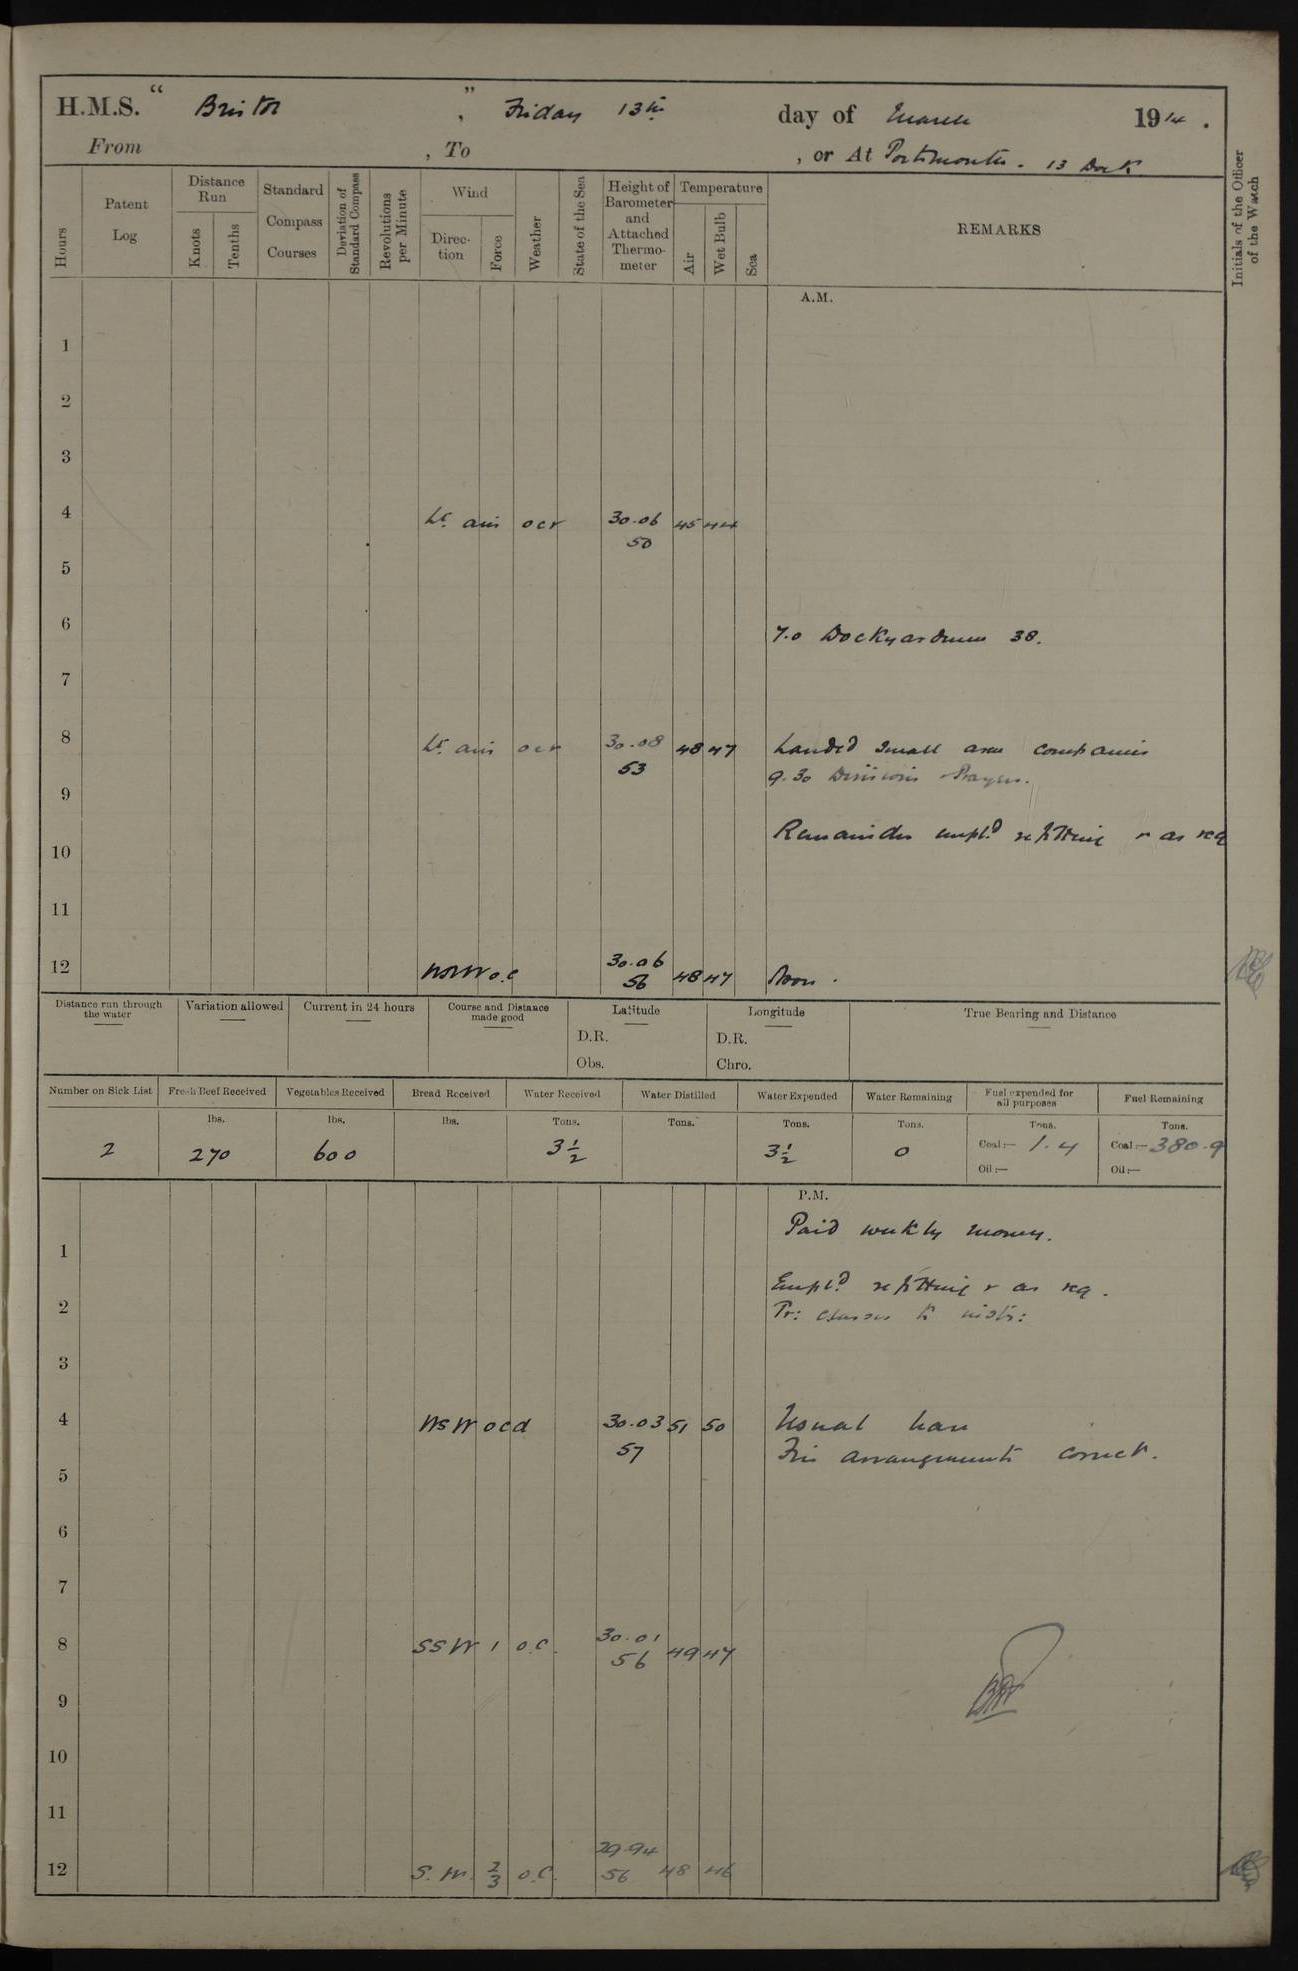 H.M.S. "Bristol", Friday 13th day of March 1914.
From , To , or At Portsmouth. 13 Dock
Hours
Patent Log
Distance Run
Knots
Tenths
Standard Compass Courses
Deviation of Standard Compass
Revolutions per Minute
Wind
Direction
Force
Weather
State of the Sea
Height of Barometer and Attached Thermometer
Temperature
Air
Wet Bulb
Sea
REMARKS
Initials of the Officer of the Watch
A.M.
1
2
3
4 Lt. airs ocr 30.06 45 44
50
5
6
7.0 Dockyardmen 38.
7
8 Lt. airs ocr 30.08 48 47 Landed small arm companies
53 9.30 Divisions Prayers.
9
Remainder empld. refitting & as req
10
11
12 WSW o.c 30.06 48 47 Noon.
56
Distance run through the water
Variation allowed
Current in 24 hours
Course and Distance made good
Latitude
D.R.
Obs.
Longitude
D.R.
Chro.
True Bearing and Distance
Number on Sick List
Fresh Beef Received
Vegetables Received
Bread Received
Water Received
Water Distilled
Water Expended
Water Remaining
Fuel expended for all purposes
Fuel Remaining
lbs. lbs. lbs. Tons. Tons. Tons. Tons. Tons. Tons.
2 270 600 3½ 3½ 0 Coal:— 1.4 Coal:— 380.9
Oil:— Oil:—
P.M.
Paid weekly money.
1
Empld. refitting & as req.
2
Pr: classes to instr:
3
4 WSW ocd 30.03 51 50 Usual leave
57 Fire arrangements correct.
5
6
7
8 SSW 1 o.c. 30.01 49 47
56
9
10
11
12 S.W. 2/3 o.c. 29.94 48 46
56